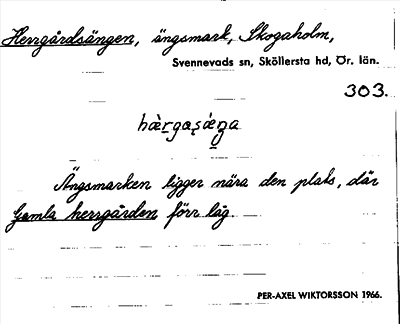 Herrgårdsängen, ängsmark, Skogaholm,
Svennevads sn, Sköllersta hd, Ör. län.
303.
hàrgas̨ǽŋa
Ängsmarken ligger nära den plats, där
Gamla herrgården förr låg.
PER-AXEL WIKTORSSON 1966.